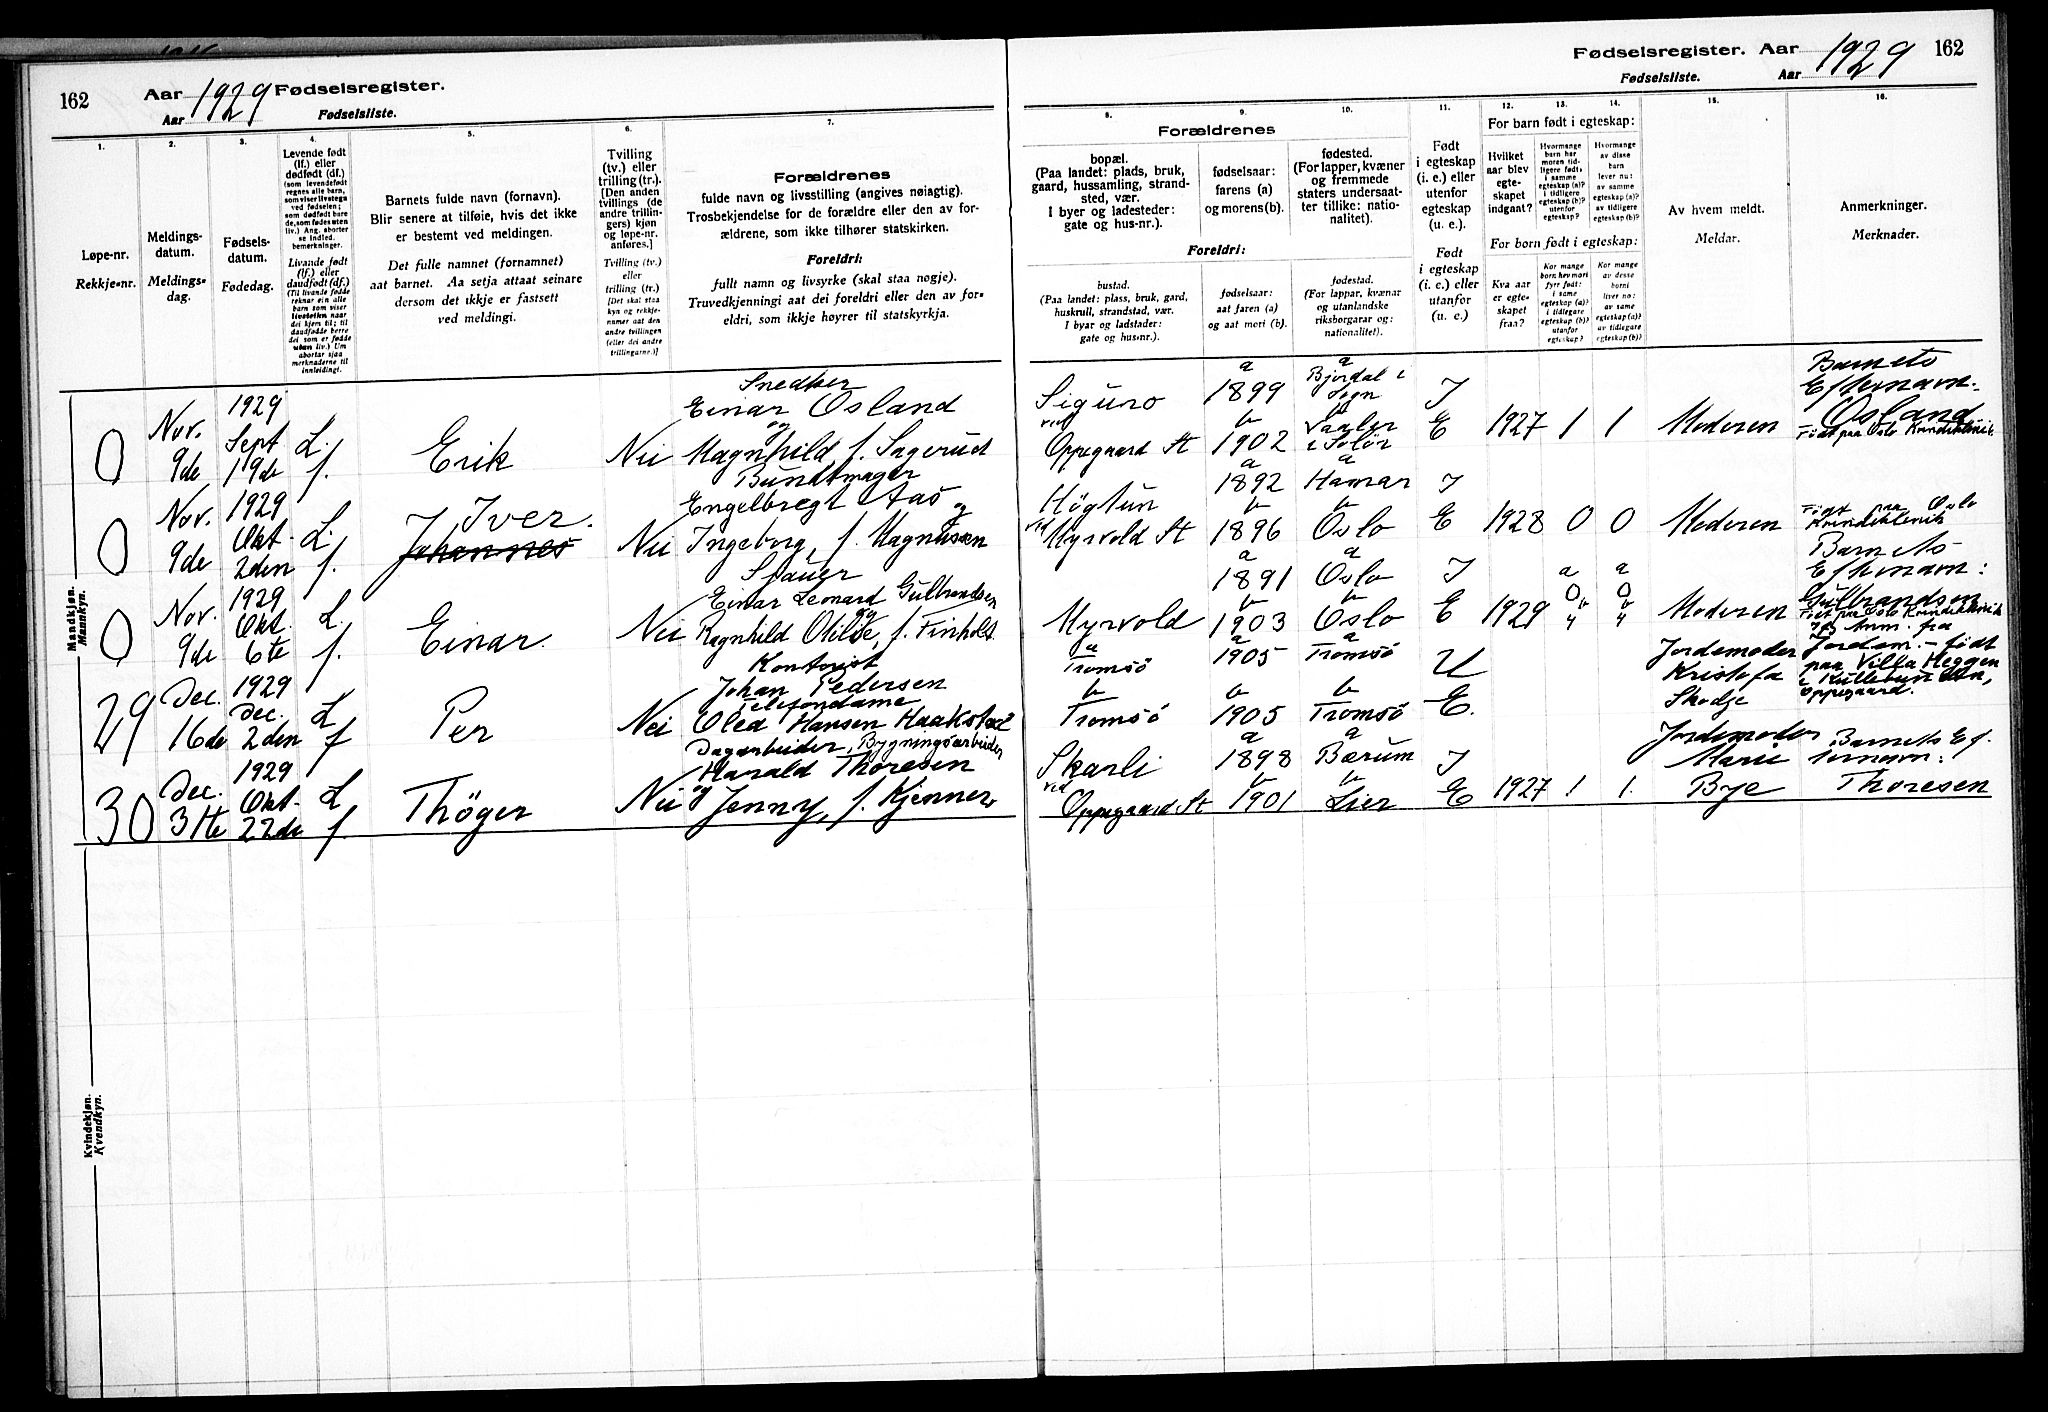 162
Aar 1929 Fødselsregister.
Aar
Fødselsliste.
1.
Løpe-nr.
Rekkje-nr.
2.
Meldings-
datum.
Meldings-
dag.
3.
Fødsels-
datum.
Fødedag.
4.
Levende født
(lf.) eller
dødfødt (df.)
(som levendefødt
regnes alle barn,
som viser livstegn
ved fødselen;
som dødfødt bare
de, som fødes uten
liv.) Ang. aborter
se indled.
bemerkninger.
Livande født
(lf.) eller
daudfødt (df.)
(Til livande fødde
reknar ein alle
barn som viser
livsteikn naar
dei kjem til; til
daudfødde berre
dei som er fødde
utan liv.) Um
abortar sjaa
merknaderne til
innleidingi.
5.
Barnets fulde navn (fornavn).
Blir senere at tilføie, hvis det ikke
er bestemt ved meldingen.
Det fulle namnet (fornamnet)
aat barnet. Aa setja attaat seinare
dersom det ikkje er fastsett
ved meldingi.
6.
Tvilling
(tv.) eller
trilling (tr.).
[Den anden
tvillings (de
andre trillin-
gers) kjøn
og løpe-nr.
anføres.]
Tvilling (tv.)
eller
trilling (tr.)
[Det skal staa
kyn og rekkje-
numer aat den
andre tvillingen
(eller dei andre
trillingarne.)]
7.
Forældrenes
fulde navn og livsstilling (angives nøiagtig).
Trosbekjendelse for de forældre eller den av for-
ældrene, som ikke tilhører statskirken.
Foreldri:
fullt namn og livsyrke (skal staa nøgje).
Truvedkjenningi aat dei foreldri eller den av for-
eldri, som ikkje høyrer til statskyrkja.
Mandkjøn.
Mannkyn.
0
Nov.
9de
1929
Sept
19de
L.
f.
Erik
Nei
Snedker
Einar Osland
og
Magnhild f. Sagerud
0
Nov.
9de
1929
Okt.
2den
L.
f.
Iver.
Johannes
Nei
Bundtmager
Engelbregt Aas og
Ingeborg, f. Magnussen
0
Nov.
9de
1929
Okt.
6te
L.
f.
Einar.
Nei
Einar Leonard Gulbrandsen
og
Ragnhild Otilde, f. Finholt
29
Dec.
16de
1929
Dec.
2den
L
f
Per
Nei
Kontorist
Johan Pedersen
Telefondame
Olea Hansen Haakstad
30
Dec.
31te
1929
Okt.
22de
L
f.
Thöger
Nei
Dagarbeider, Bygningsarbeider
Harald Thoresen
og Jenny, f. Kjenner
Kvindekjøn.
Kvendkyn.
Fødselsregister. Aar 1929 162
Fødselsliste. Aar
8.
Forældrenes
bopæl.
(Paa landet: plads, bruk,
gaard, hussamling, strand-
sted, vær.
I byer og ladesteder:
gate og hus-nr.).
Foreldri:
bustad.
(Paa landet: plass, bruk, gard,
huskrull, strandstad, vær.
I byar og ladstader:
gate og hus-nr.).
9.
fødselsaar:
farens (a)
og morens (b).
fødselsaar:
aat faren (a)
og aat mori (b).
10.
fødested.
(For lapper, kvæner
og fremmede
staters undersaat-
ter tillike: natio-
nalitet).
fødestad.
(For lappar, kvænar
og utanlandske
riksborgarar og:
nationalitet).
11.
Født
i egteskap
(i. e.) eller
utenfor
egteskap
(u. e.).
Født
i egteskap
(i. e.) eller
utanfor
(u. e.)
12.
For barn født i egteskap:
Hvilket
aar blev
egte-
skapet
indgaat?
For born født i egteskap:
Kva aar
er egte-
skapet
fraa?
13.
Hvormange
barn har
moren tid-
ligere født:
i samme
egteskap (a)?
i tidligere
egteskap (b)?
utenfor
egteskap?
Kor mange
born hev mori
fyrr født:
i same
egteskap (a)?
i tidlegare
egteskap (b)?
utanfor
egteskap?
14.
Hvormange
av disse
barn
lever nu:
av samme
egteskap (a)?
av tidligere
egteskap (b)?
Kor mange
av desse
borni
liver no:
av same
egteskap (a)?
av tidlegare
egteskap (b)?
15.
Av hvem meldt.
Meldar.
16.
Anmerkninger.
Merknader.
Siguro
ved
Oppegaard St
a
1899
b
1902
a
Bjordal i
Sogn
b
Vaaler
i Solör
I
E
1927
1
1
Moderen
Barnets
Efternavn:
Osland
Födt paa Oslo Kvindeklinik
Högtun
ved
Myrvold St
a
1892
b
1896
a
Hamar
b
Oslo
I
E
1928
0
0
Moderen
Födt paa Oslo
Kvindeklinik
Myrvold
a
1891
b
1903
a
Oslo
b
Oslo
I
E
1929
a
0
b
4
a
0
b
4
Moderen
Barnets
Efternavn:
Gulbrandsen
Födt paa Oslo Kvindeklinik
a
Tromsö
b
Tromsö
a
1905
b
1905
a
Tromsö
b
Tromsö
U
E.
Jordemoder
Kristofa
Skodje
Anm. fra
Jordem. – födt
paa Villa Heggen
i Kullebund
Oppegaard.
Skarli
ved
Oppegaard St
a
1898
b
1901
a
Bærum
b
Lier
I
E
1927
1
1.
Jordemoder
Marie
Bye
Barnets Ef-
ternavn:
Thoresen